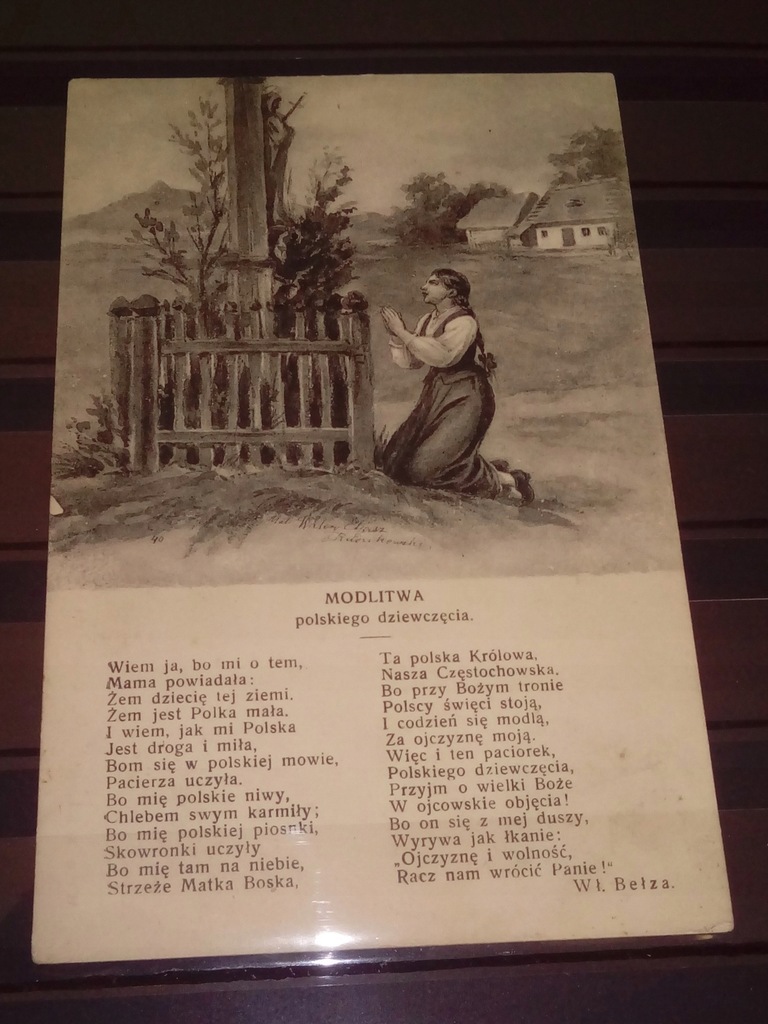 40
MODLITWA
polskiego dziewczęcia.
Wiem ja, bo mi o tem,
Mama powiadała:
Żem dziecię tej ziemi.
Żem jest Polka mała.
I wiem, jak mi Polska
Jest droga i miła,
Bom się w polskiej mowie,
Pacierza uczyła.
Bo mię polskie niwy,
Chlebem swym karmiły;
Bo mię polskiej piosnki,
Skowronki uczyły
Bo mię tam na niebie,
Strzeże Matka Boska,
Ta polska Królowa,
Nasza Częstochowska.
Bo przy Bożym tronie
Polscy święci stoją,
I codzień się modlą,
Za ojczyznę moją.
Więc i ten paciorek,
Polskiego dziewczęcia,
Przyjm o wielki Boże
W ojcowskie objęcia!
Bo on się z mej duszy,
Wyrywa jak łkanie:
„Ojczyznę i wolność,
Racz nam wrócić Panie!"
Wł. Bełza.